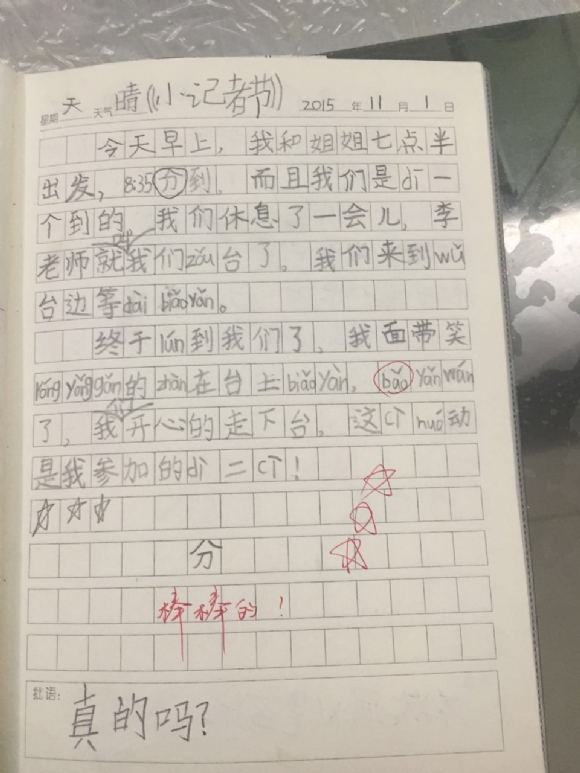 星期 天 天气 晴《小记者节》 2015 年 11 月 1 日
今天早上，我和姐姐七点半
出发，8:35分到，而且我们是dì一
个到的，我们休息了一会儿，李
老师就叫我们zǒu台了。我们来到wǔ
台边等dài biǎoyǎn。
终于lún到我们了，我面带笑
róng yǒng gǎn的zhàn在台上biǎo yǎn，biǎo yǎn wán
了，我开心的走下台。这cì huó动
是我参加的dì二cì！
☆☆☆
分
棒棒的！
批语：
真的吗？